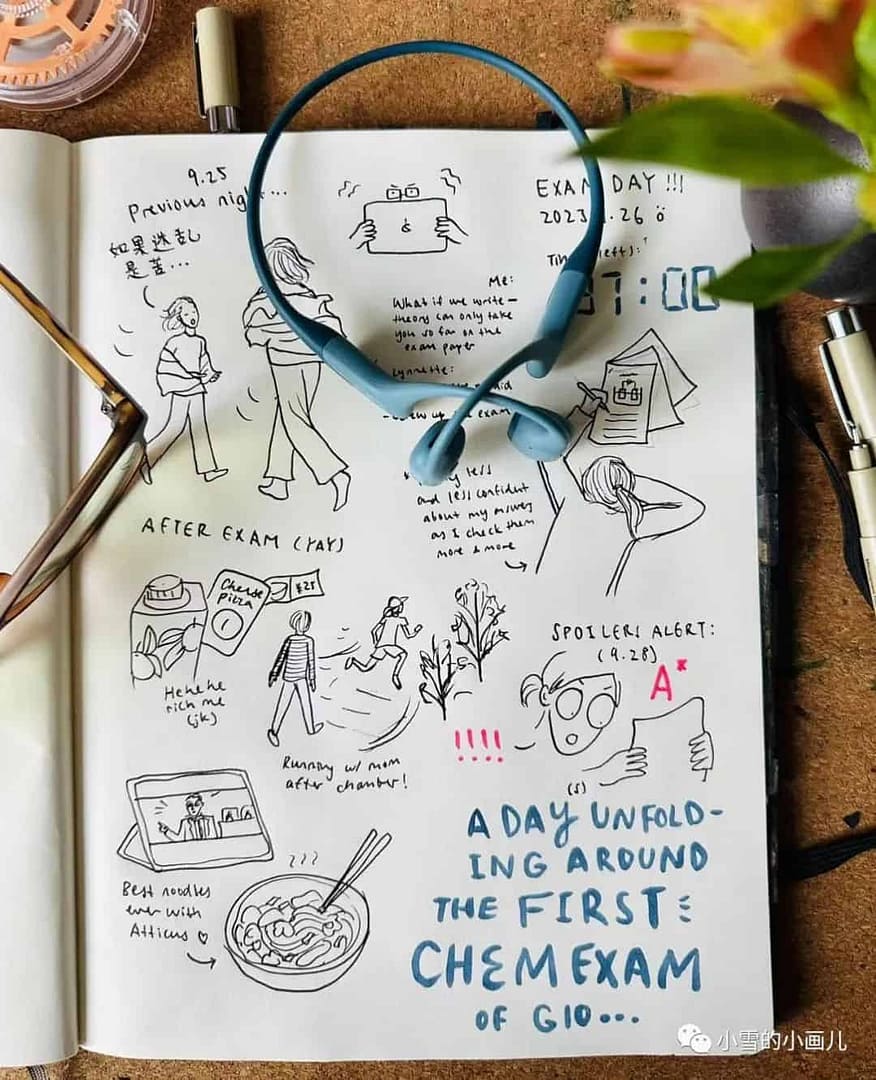 9.25
Previous
如果迷乱
是苦...
EXAM DAY !!!
2023
:00
Me:
What if we write—
theory can only take
you so far on the
exam paper
Lynnette:
up exam
less
and less confident
about my answers
as I check them
more & more
AFTER EXAM (YAY)
Cheese
Pizza
¥25
Hehehe
rich me
(jk)
Running w/ mom
after chamber!
SPOILERS ALERT:
(9.28)
A*
!!!!
(s)
Best noodles
ever with
Atticus ♡
A DAY UNFOLD-
ING AROUND
THE FIRST
CHEM EXAM
OF G10...
小雪的小画儿